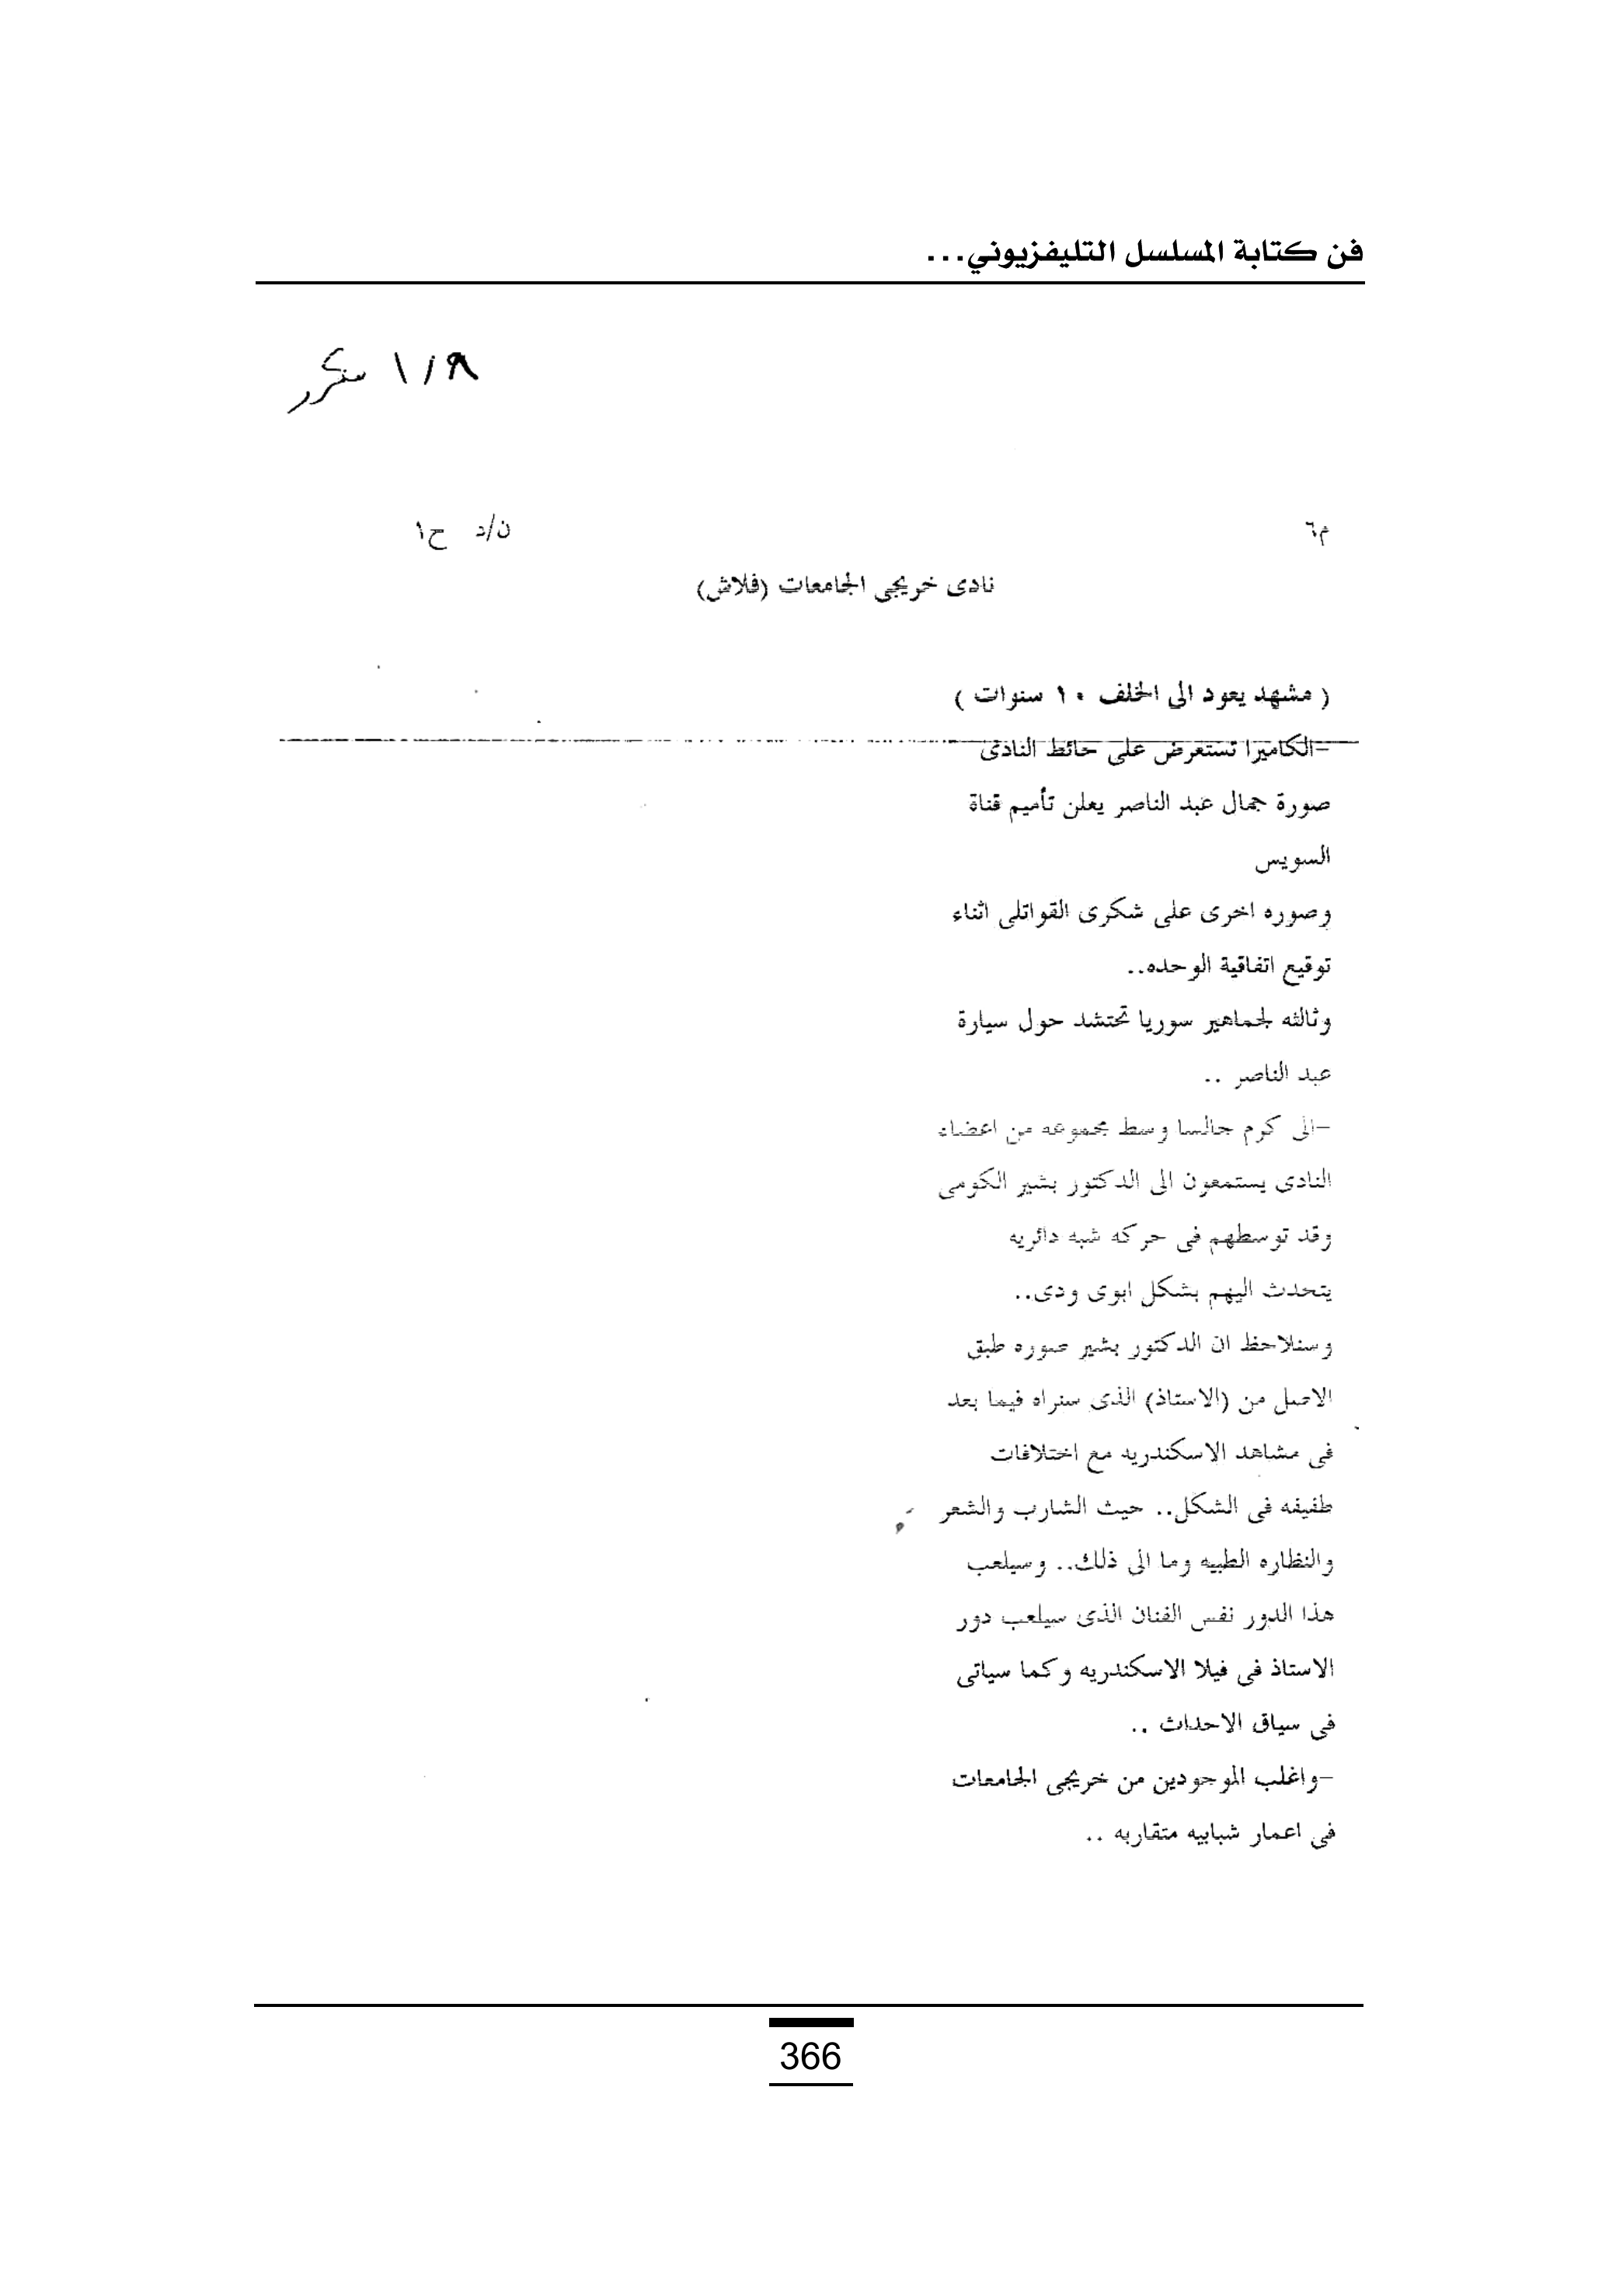 فن كتابة المسلسل التليفزيوني...
١/٩ مكرر
م٦ ن/د ح١
نادى خريجى الجامعات (فلاش)
( مشهد يعود الى الخلف ١٠ سنوات )
-الكاميرا تستعرض على حائط النادى
صورة جمال عبد الناصر يعلن تأميم قناة
السويس
وصوره اخرى على شكرى القواتلى اثناء
توقيع اتفاقية الوحده..
وثالثه لجماهير سوريا تحتشد حول سيارة
عبد الناصر ..
-الى كرم جالسا وسط مجموعه من اعضاء
النادى يستمعون الى الدكتور بشير الكومى
وقد توسطهم فى حركه شبه دائريه
يتحدث اليهم بشكل ابوى ودى..
وسنلاحظ ان الدكتور بشير صوره طبق
الاصل من (الاستاذ) الذى سنراه فيما بعد
فى مشاهد الاسكندريه مع اختلافات
طفيفه فى الشكل.. حيث الشارب والشعر
والنظاره الطبيه وما الى ذلك.. وسيلعب
هذا الدور نفس الفنان الذى سيلعب دور
الاستاذ فى فيلا الاسكندريه وكما سياتى
فى سياق الاحداث ..
-واغلب الموجودين من خريجى الجامعات
فى اعمار شبابيه متقاربه ..
366